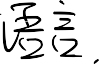 语言.